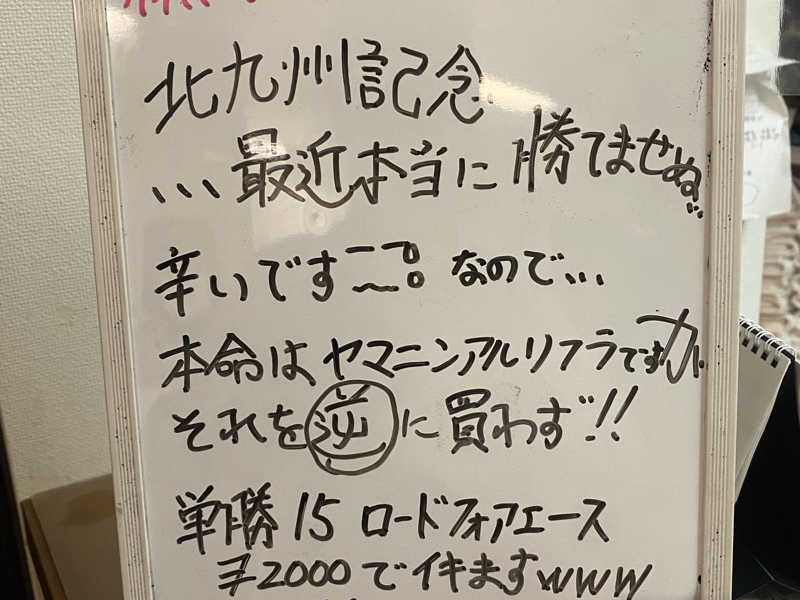 北九州記念
...最近本当に勝てませぬ...
辛いです なので...
本命は ヤマニンアルリフラですが、
それを逆に買わず!!
単勝 15 ロードフォアエース
¥2000でイキますwww